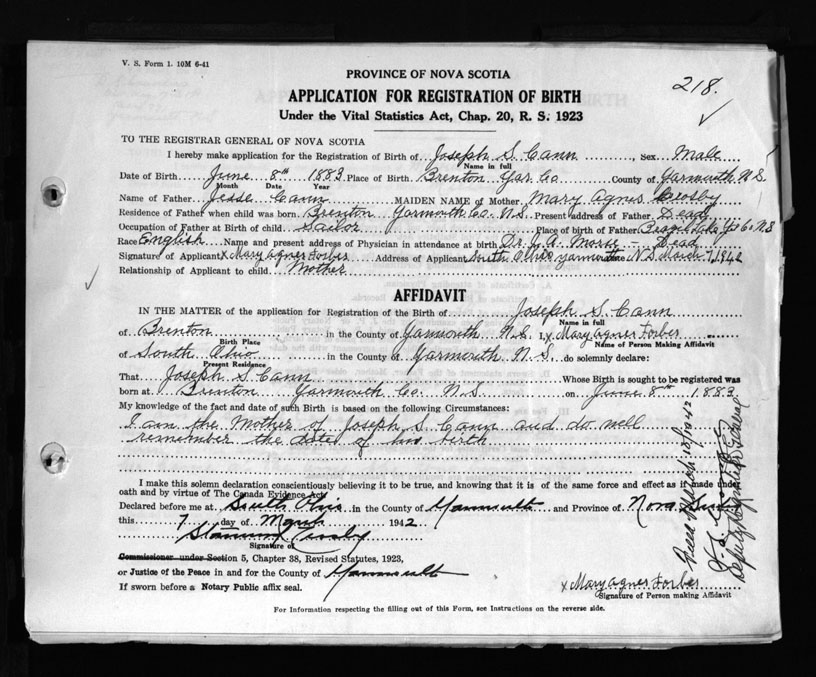 V. S. Form 1. 10M 6-41
PROVINCE OF NOVA SCOTIA
218.
APPLICATION FOR REGISTRATION OF BIRTH
Under the Vital Statistics Act, Chap. 20, R. S. 1923
TO THE REGISTRAR GENERAL OF NOVA SCOTIA
I hereby make application for the Registration of Birth of Joseph S. Cann, Sex Male
Name in full
Date of Birth June 8th 1883 Place of Birth Brenton Yar Co County of Yarmouth N.S.
Month Date Year
Name of Father Jesse Cann MAIDEN NAME of Mother Mary Agnes Crosby
Residence of Father when child was born Brenton Yarmouth Co. N.S. Present address of Father Dead
Occupation of Father at Birth of child Sailor Place of Birth of Father Lake N S
Race English Name and present address of Physician in attendance at birth Dr. Morse - Dead
Signature of Applicant x Mary Agnes Forbes Address of Applicant South Ohio Yarmouth N.S. Date March 7, 1942
Relationship of Applicant to child Mother
AFFIDAVIT
IN THE MATTER of the application for Registration of the Birth of Joseph S. Cann
Name in full
of Brenton in the County of Yarmouth N.S. I, x Mary Agnes Forbes
Birth Place Name of Person Making Affidavit
of South Ohio in the County of Yarmouth N.S. do solemnly declare:
Present Residence
That Joseph S. Cann Whose Birth is sought to be registered was
born at Brenton Yarmouth Co. N.S. on June 8th 1883
My knowledge of the fact and date of such Birth is based on the following Circumstances:
I am the Mother of Joseph S. Cann and do well
remember the date of his birth
I make this solemn declaration conscientiously believing it to be true, and knowing that it is of the same force and effect as if made under
oath and by virtue of The Canada Evidence Act.
Declared before me at South Ohio in the County of Yarmouth and Province of Nova Scotia
this 7 day of March 1942
Crosby
Signature of
Commissioner under Section 5, Chapter 38, Revised Statutes, 1923,
or Justice of the Peace in and for the County of Yarmouth
If sworn before a Notary Public affix seal.
x Mary Agnes Forbes
Signature of Person making Affidavit
For Information respecting the filling out of this Form, see Instructions on the reverse side.
March 10/1942
Deputy Registrar General